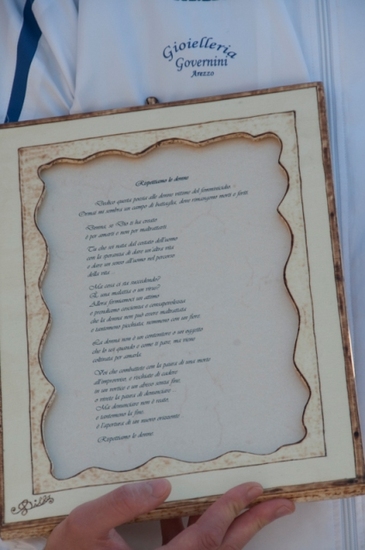 Gioielleria
Governini
Arezzo
Rispettiamo le donne
Dedico questa poesia alle donne vittime del femminicidio -
Ormai mi sembra un campo di battaglia, dove rimangono morti e feriti.
Donna, se Dio ti ha creato
è per amarti e non per maltrattarti.
Tu che sei nata dal costato dell'uomo
con la speranza di dare un'altra vita
e dare un senso all'uomo nel percorso
della vita...
Ma cosa ci sta succedendo?
È, una malattia o un virus?
Allora fermiamoci un attimo
e prendiamo coscienza e consapevolezza
che la donna non può essere maltrattata
e tantomeno picchiata, nemmeno con un fiore.
La donna non è un contenitore o un oggetto
che lo usi quando e come ti pare, ma viene
coltivata per amarla.
Voi che combattete con la paura di una morte
all'improvviso, e rischiate di cadere
in un vortice e un abisso senza fine,
e vivete la paura di denunciare
Ma denunciare non è reato,
e tantomeno la fine,
è l'apertura di un nuovo orizzonte
Rispettiamo le donne